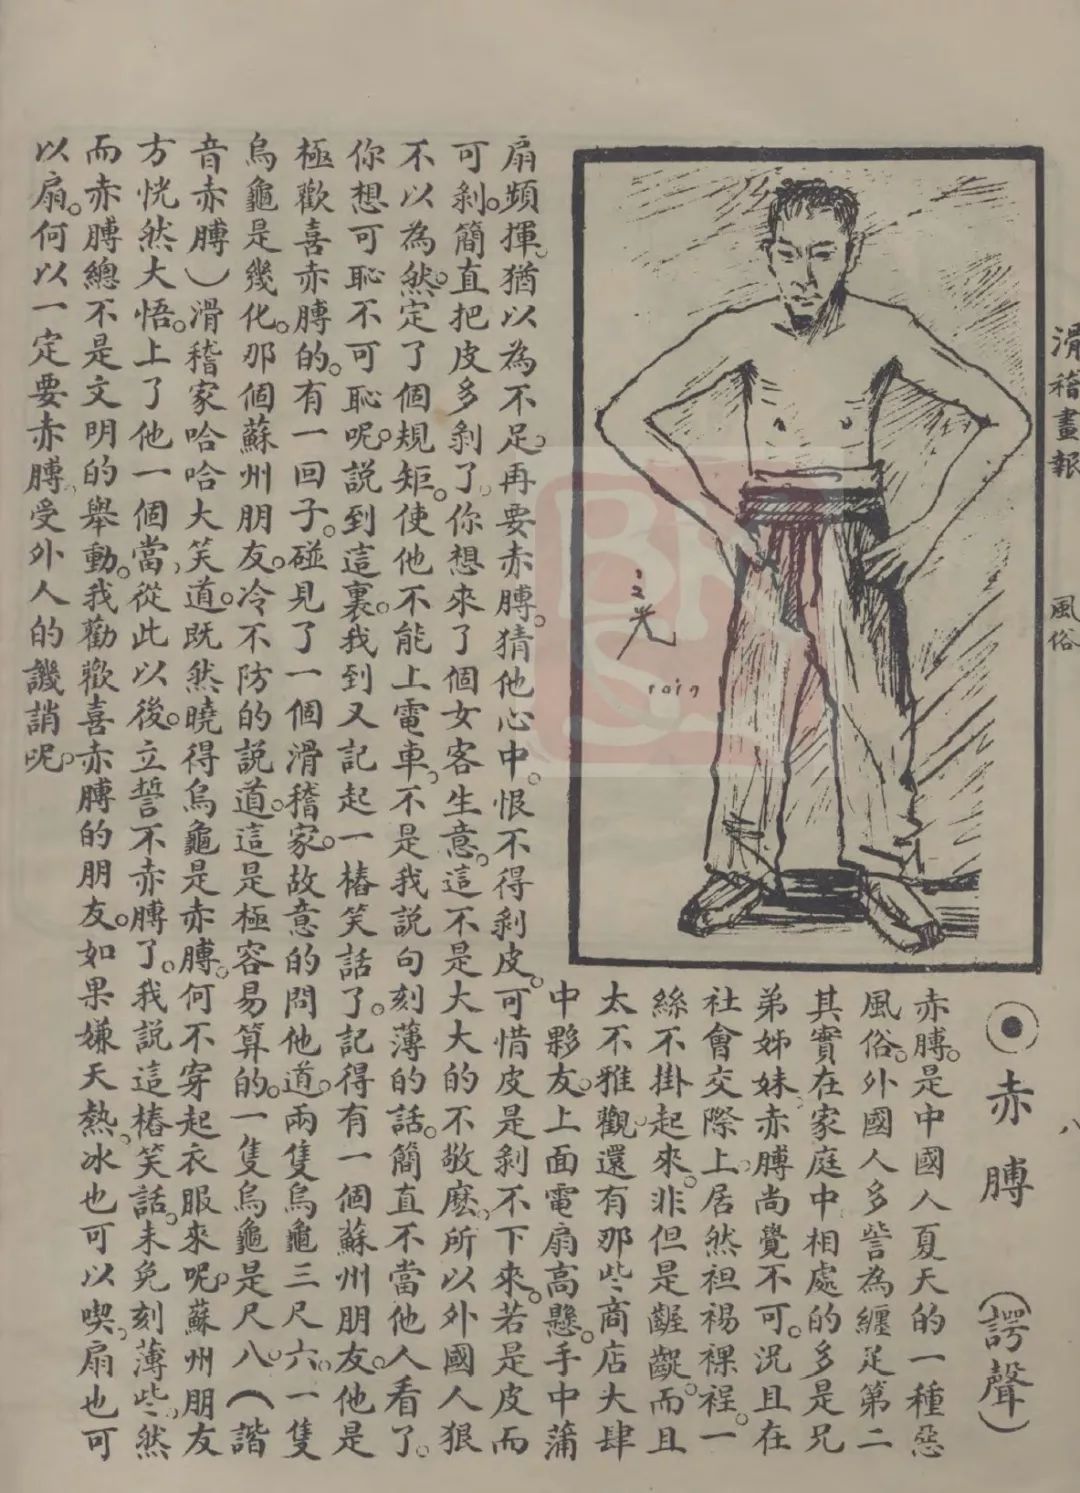 滑稽畫報
風俗
八
之光
rain
赤膊
(諤聲)
赤膊。是中國人夏天的一種惡
風俗。外國人多訾為纏足第二
其實在家庭中相處的多是兄
弟姊妹、赤膊尚覺不可。況且在
社會交際上。居然袒裼裸裎。一
絲不掛起來。非但是齷齪。而且
太不雅觀。還有那些商店大肆
中夥友。上面電扇高懸。手中蒲
扇頻揮。猶以為不足。再要赤膊。猜他心中。恨不得剝皮。可惜皮是剝不下來。若是皮而
可剝。簡直把皮多剝了。你想來了個女客生意。這不是大大的不敬麽。所以外國人狠
不以為然。定了個規矩。使他不能上電車、不是我説句刻薄的話。簡直不當他人看了。
你想可恥不可恥呢。説到這裏。我到又記起一樁笑話了。記得有一個蘇州朋友。他是
極歡喜赤膊的。有一回子。碰見了一個滑稽家。故意的問他道。兩隻烏龜三尺六。一隻
烏龜是幾化。那個蘇州朋友。冷不防的説道。這是極容易算的。一隻烏龜是尺八。(諧
音赤膊)滑稽家哈哈大笑道。既然曉得烏龜是赤膊。何不穿起衣服來呢。蘇州朋友
方恍然大悟。上了他一個當、從此以後。立誓不赤膊了。我説這樁笑話。未免刻薄些、然
而赤膊總不是文明的舉動。我勸歡喜赤膊的朋友。如果嫌天熱、冰也可以喫、扇也可
以扇。何以一定要赤膊、受外人的譏誚呢。